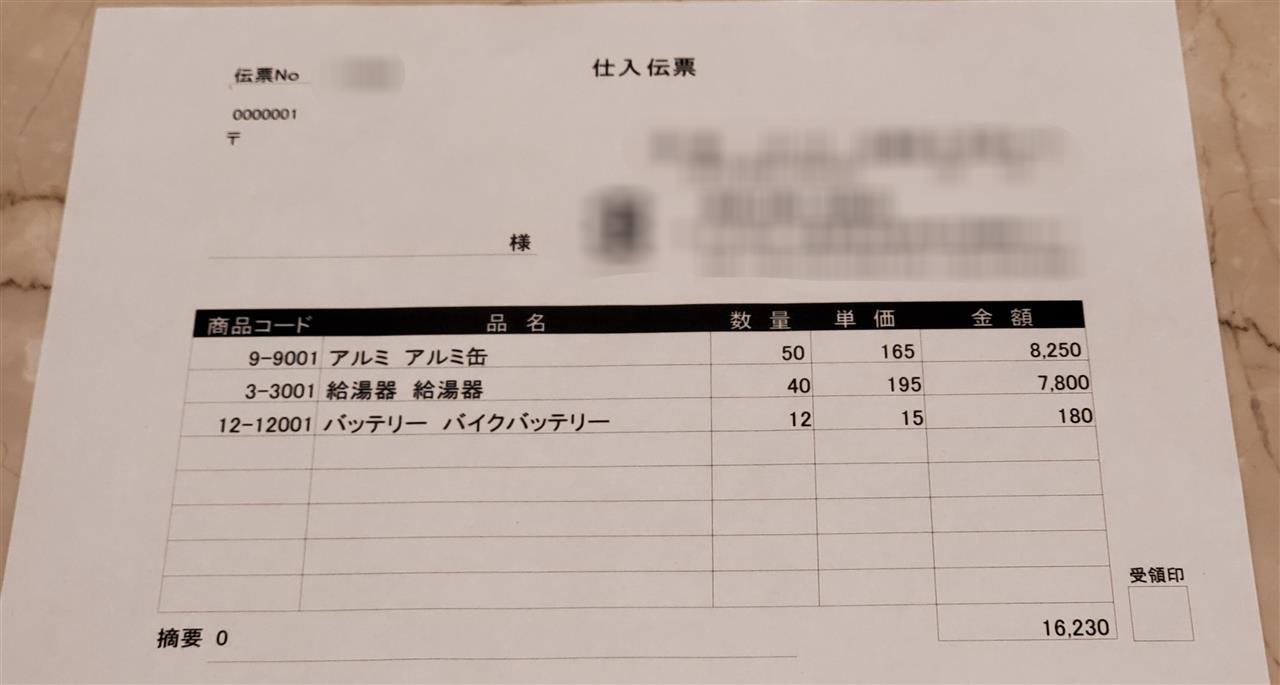 仕入伝票
伝票No
0000001
〒
様
商品コード 品 名 数 量 単 価 金 額
9-9001 アルミ アルミ缶 50 165 8,250
3-3001 給湯器 給湯器 40 195 7,800
12-12001 バッテリー バイクバッテリー 12 15 180
16,230
受領印
摘要 0